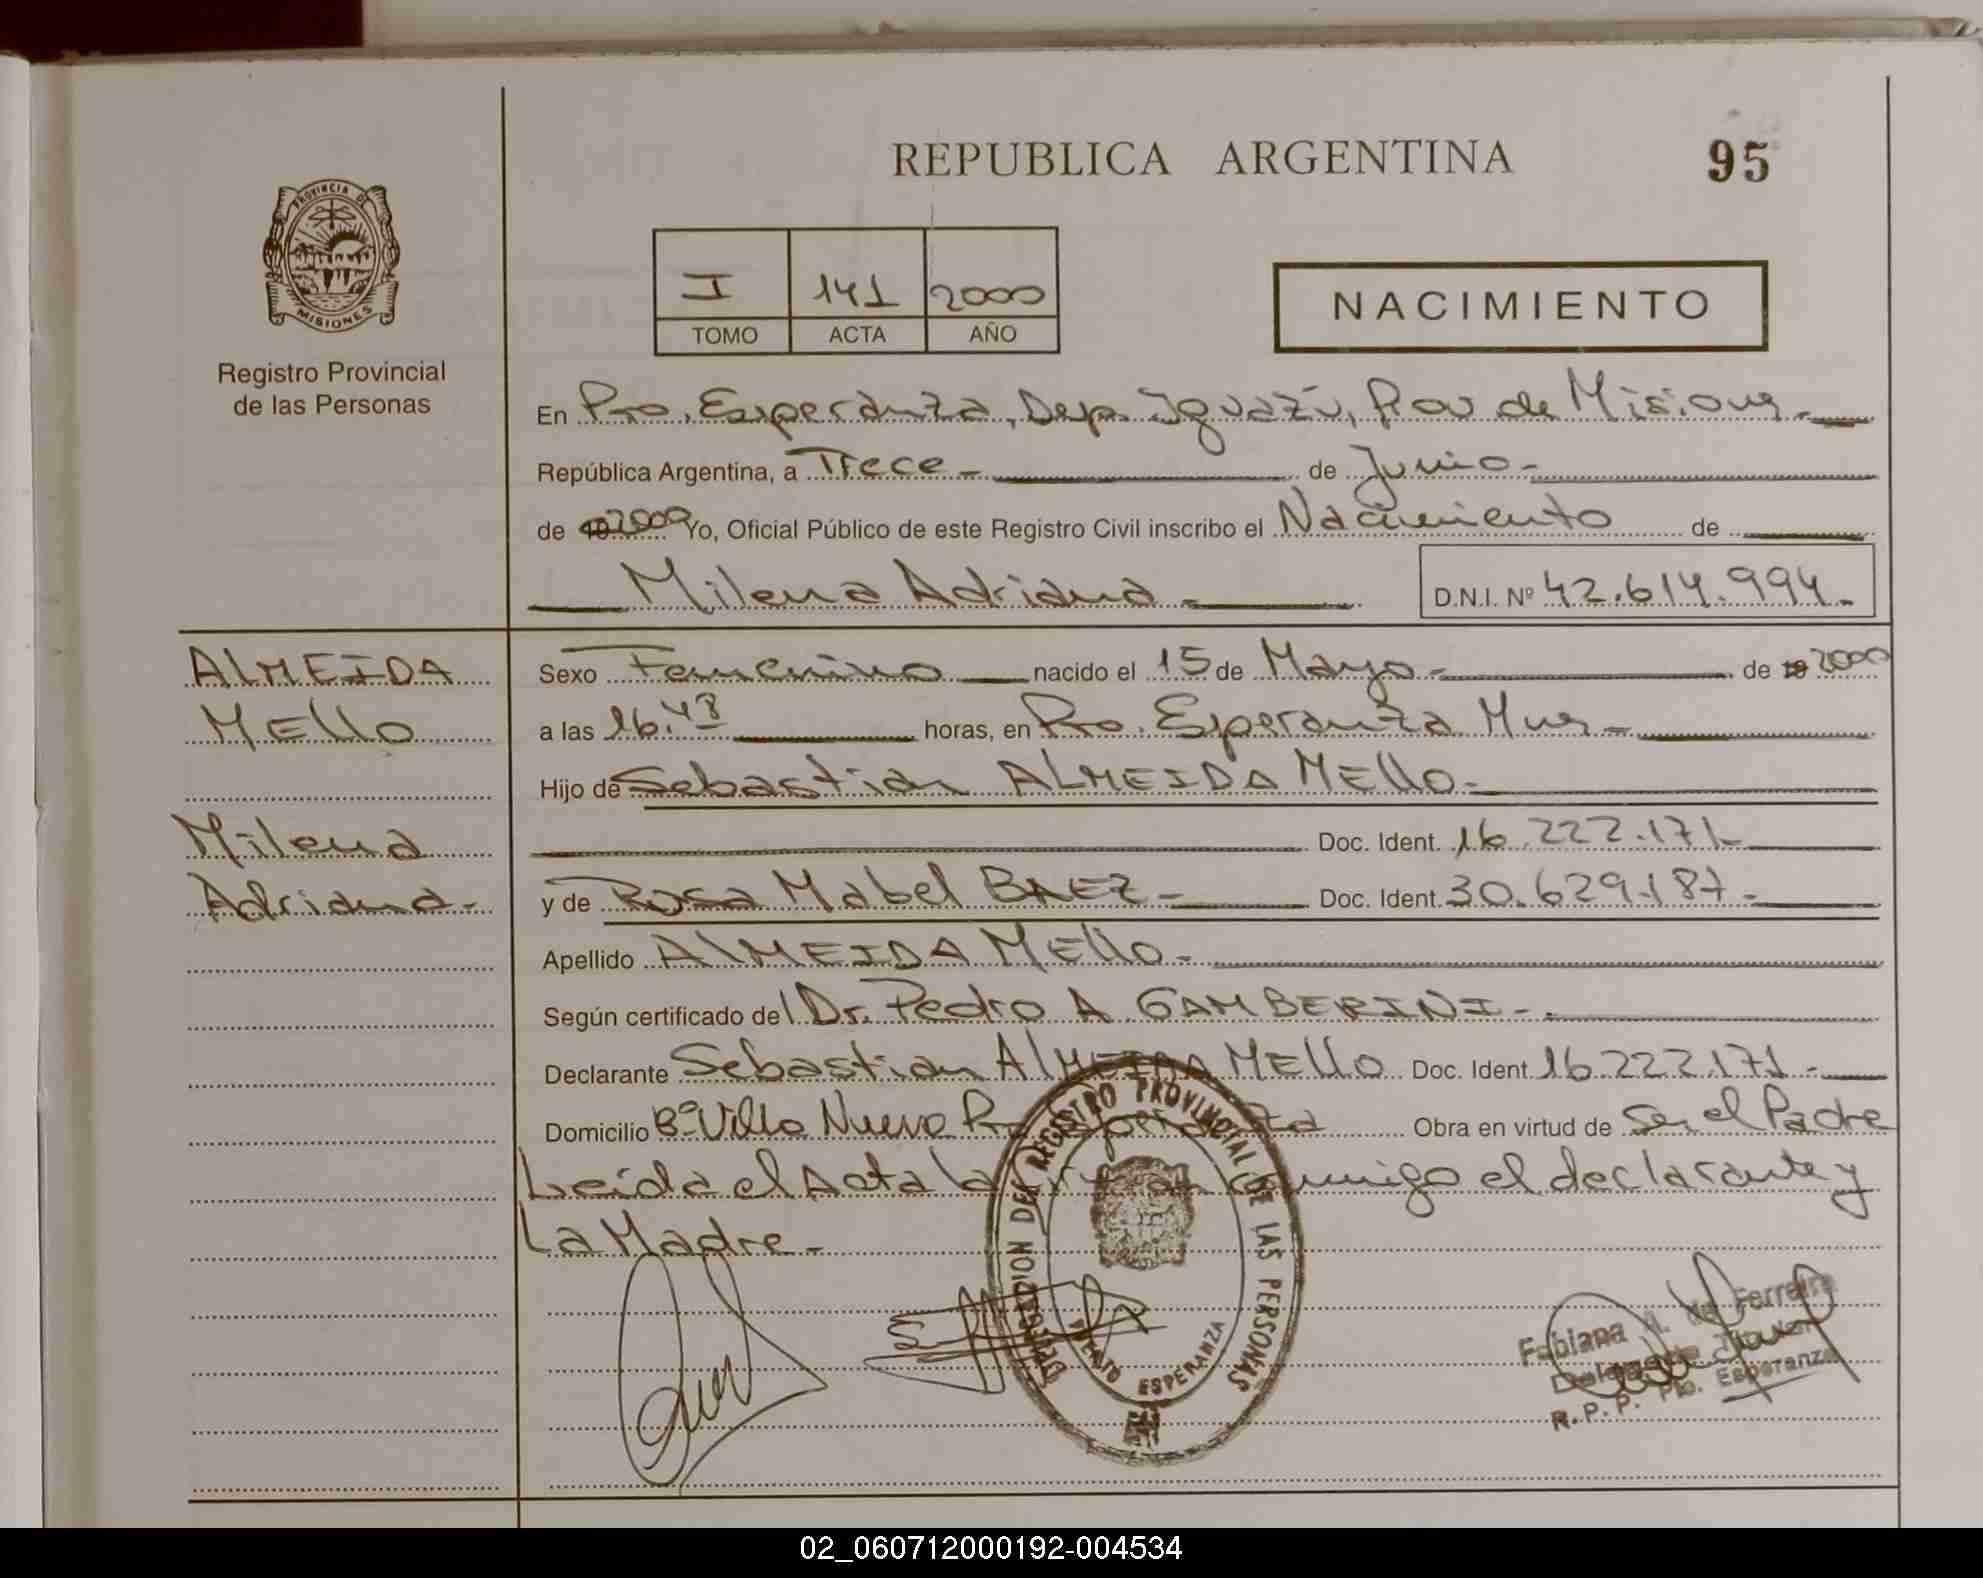 REPUBLICA ARGENTINA
95
PROVINCIA DE
MISIONES
Registro Provincial
de las Personas
I 141 2000
TOMO ACTA AÑO
NACIMIENTO
En Pto. Esperanza, Dep. Iguazú, Prov de Misiones.-
República Argentina, a Trece - de Junio -
de 19 2000 Yo, Oficial Público de este Registro Civil inscribo el Nacimiento de
Milena Adriana - D.N.I. Nº 42.614.994.-
ALMEIDA
MEllo
Milena
Adriana -
Sexo Femenino nacido el 15 de Mayo - de 19 2000
a las 16.48 horas, en Pto. Esperanza Mnes -
Hijo de Sebastian ALMEIDA MEllo -
Doc. Ident. 16.222.171-
y de Rosa Mabel BAEZ - Doc. Ident. 30.629.187 -
Apellido AlMEIDA MEllo -
Según certificado del Dr. Pedro A GAMBERINI -
Declarante Sebastian AlMEIDA MEllo Doc. Ident 16.222.171 -
Domicilio Bº Villa Nueva Pto Esperanza Obra en virtud de Ser el Padre
Leída el Acta la firman conmigo el declarante y
La Madre -
DELEGACION DEL REGISTRO PROVINCIAL DE LAS PERSONAS
PUERTO ESPERANZA
Fabiana de Ferreira
R.P.P. Pto. Esperanza
02_060712000192-004534